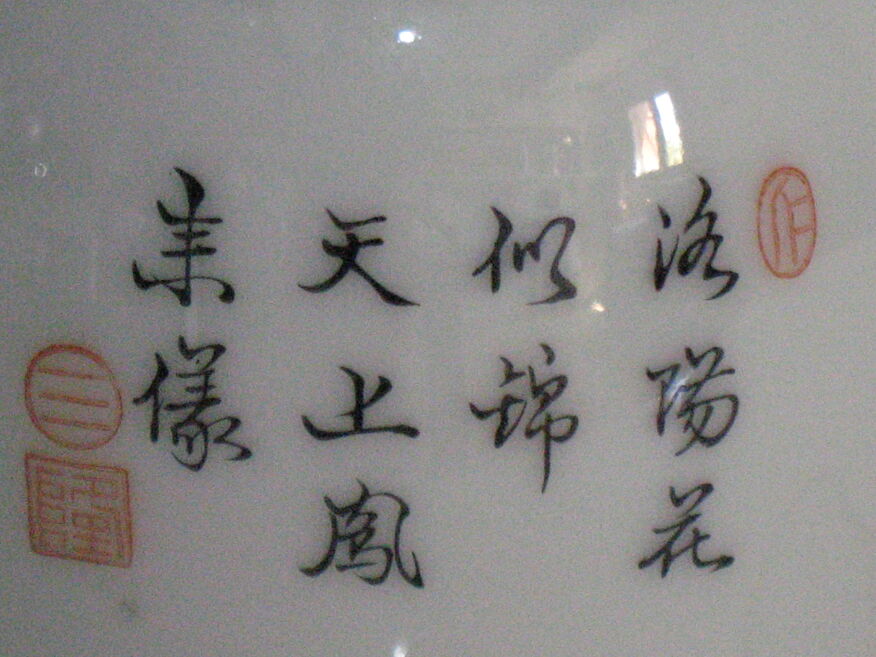 洛陽花
似錦
天上鳳
来儀